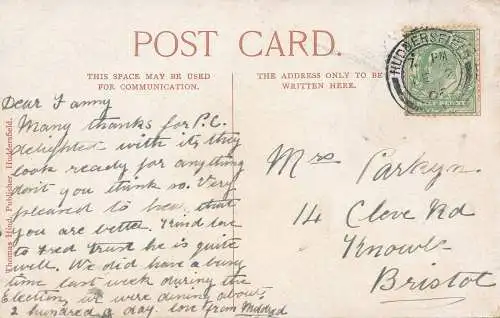 POST CARD.
THIS SPACE MAY BE USED
FOR COMMUNICATION.
THE ADDRESS ONLY TO BE
WRITTEN HERE.
HUDDERSFIELD
Thomas Hind, Publisher, Huddersfield.
Dear Fanny
Many thanks for P.C.
delighted with it, they
look ready for anything
don't you think so. Very
pleased to hear that
you are better. Kind love
to Fred trust he is quite
well. We did have a busy
time last week during the
Election, we were dining about
2 hundred a day. love from Mildred
Mrs Parkyn.
14 Cleve Rd
Knowle
Bristol